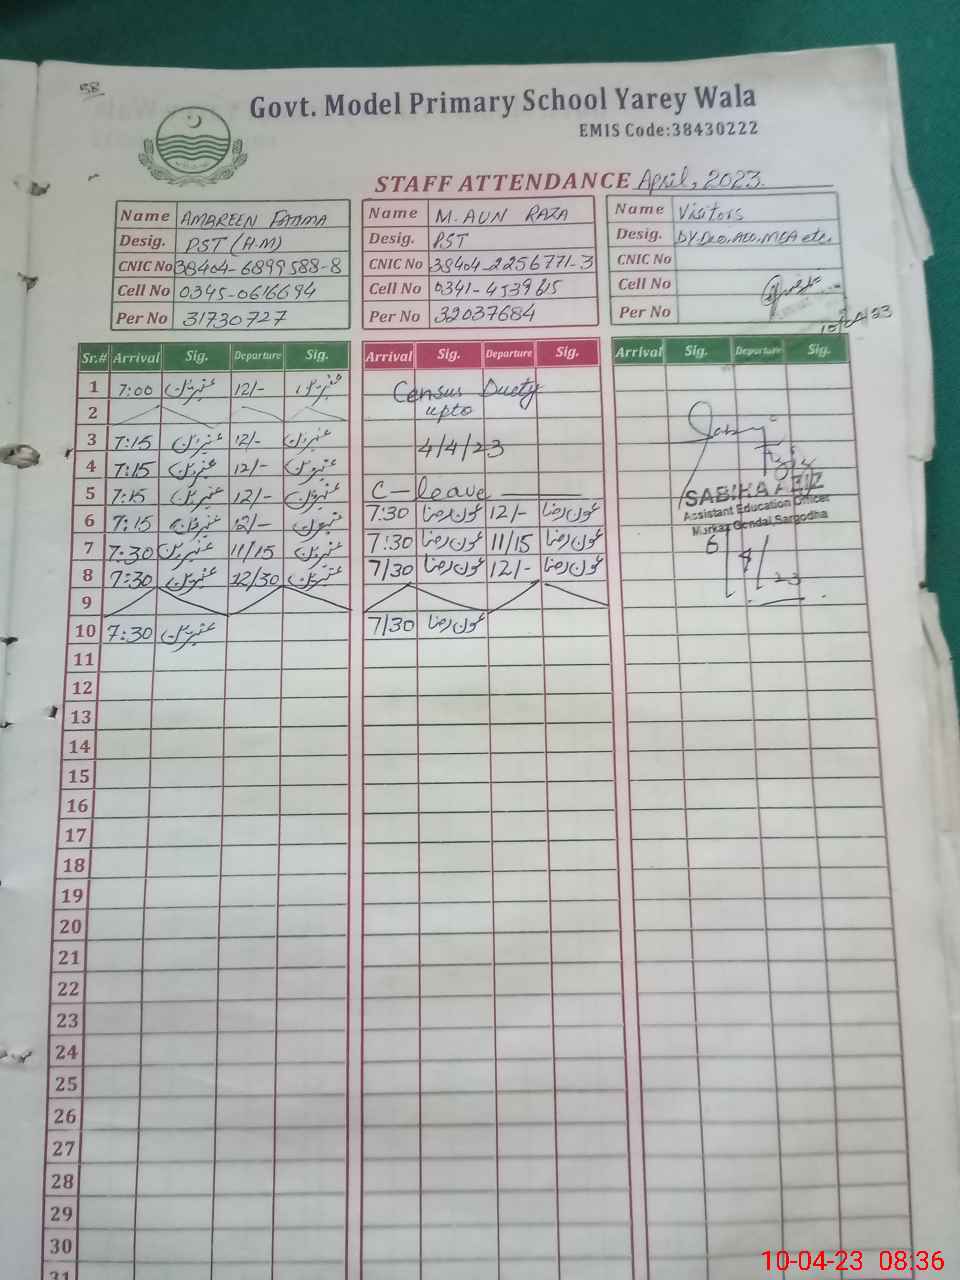 58
Govt. Model Primary School Yarey Wala
EMIS Code:38430222
STAFF ATTENDANCE April, 2023.
Name AMBREEN FATIMA Name M. AUN RAZA Name Visitors
Desig. PST (H.M) Desig. PST Desig. DY DEO, AEO, MEA etc.
CNIC No 38404-6899588-8 CNIC No 38404-2256771-3 CNIC No
Cell No 0345-0616694 Cell No 0341-4539615 Cell No
Per No 31730727 Per No 32037684 Per No
10/04/23
Sr.# Arrival Sig. Departure Sig. Arrival Sig. Departure Sig. Arrival Sig. Departure Sig.
1 7:00 عنبرین 12/- عنبرین Census Duety
2 upto
3 7:15 عنبرین 12/- عنبرین 4/4/23
4 7:15 عنبرین 12/- عنبرین
5 7:15 عنبرین 12/- عنبرین C-leave
SABIHA AZIZ
Assistant Education Officer
Markaz Gondal Sargodha
6 7:15 عنبرین 12/- عنبرین 7:30 عون رضا 12/- عون رضا
7 7:30 عنبرین 11/15 عنبرین 7:30 عون رضا 11/15 عون رضا 6/4/23
8 7:30 عنبرین 12/30 عنبرین 7/30 عون رضا 12/- عون رضا
9
10 7:30 عنبرین 7/30 عون رضا
11
12
13
14
15
16
17
18
19
20
21
22
23
24
25
26
27
28
29
30
31
10-04-23 08:36